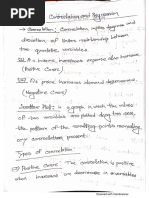 Correlation and Regression
→ Correlation: Correlation implies degree and
direction of linear relationship between
two quantitative variables
Ex1 As income increases expense also increase
(Positive Corre)
Ex2 As price increases demand decreases
(Negative Corre)
Scatter Plot: is a graph in which the values
of two variables are plotted along two axes,
the pattern of the resulting points revealing
any correlation present.
Types of correlation
Positive Corre: The correlation is positive
when increase or decrease in one variable